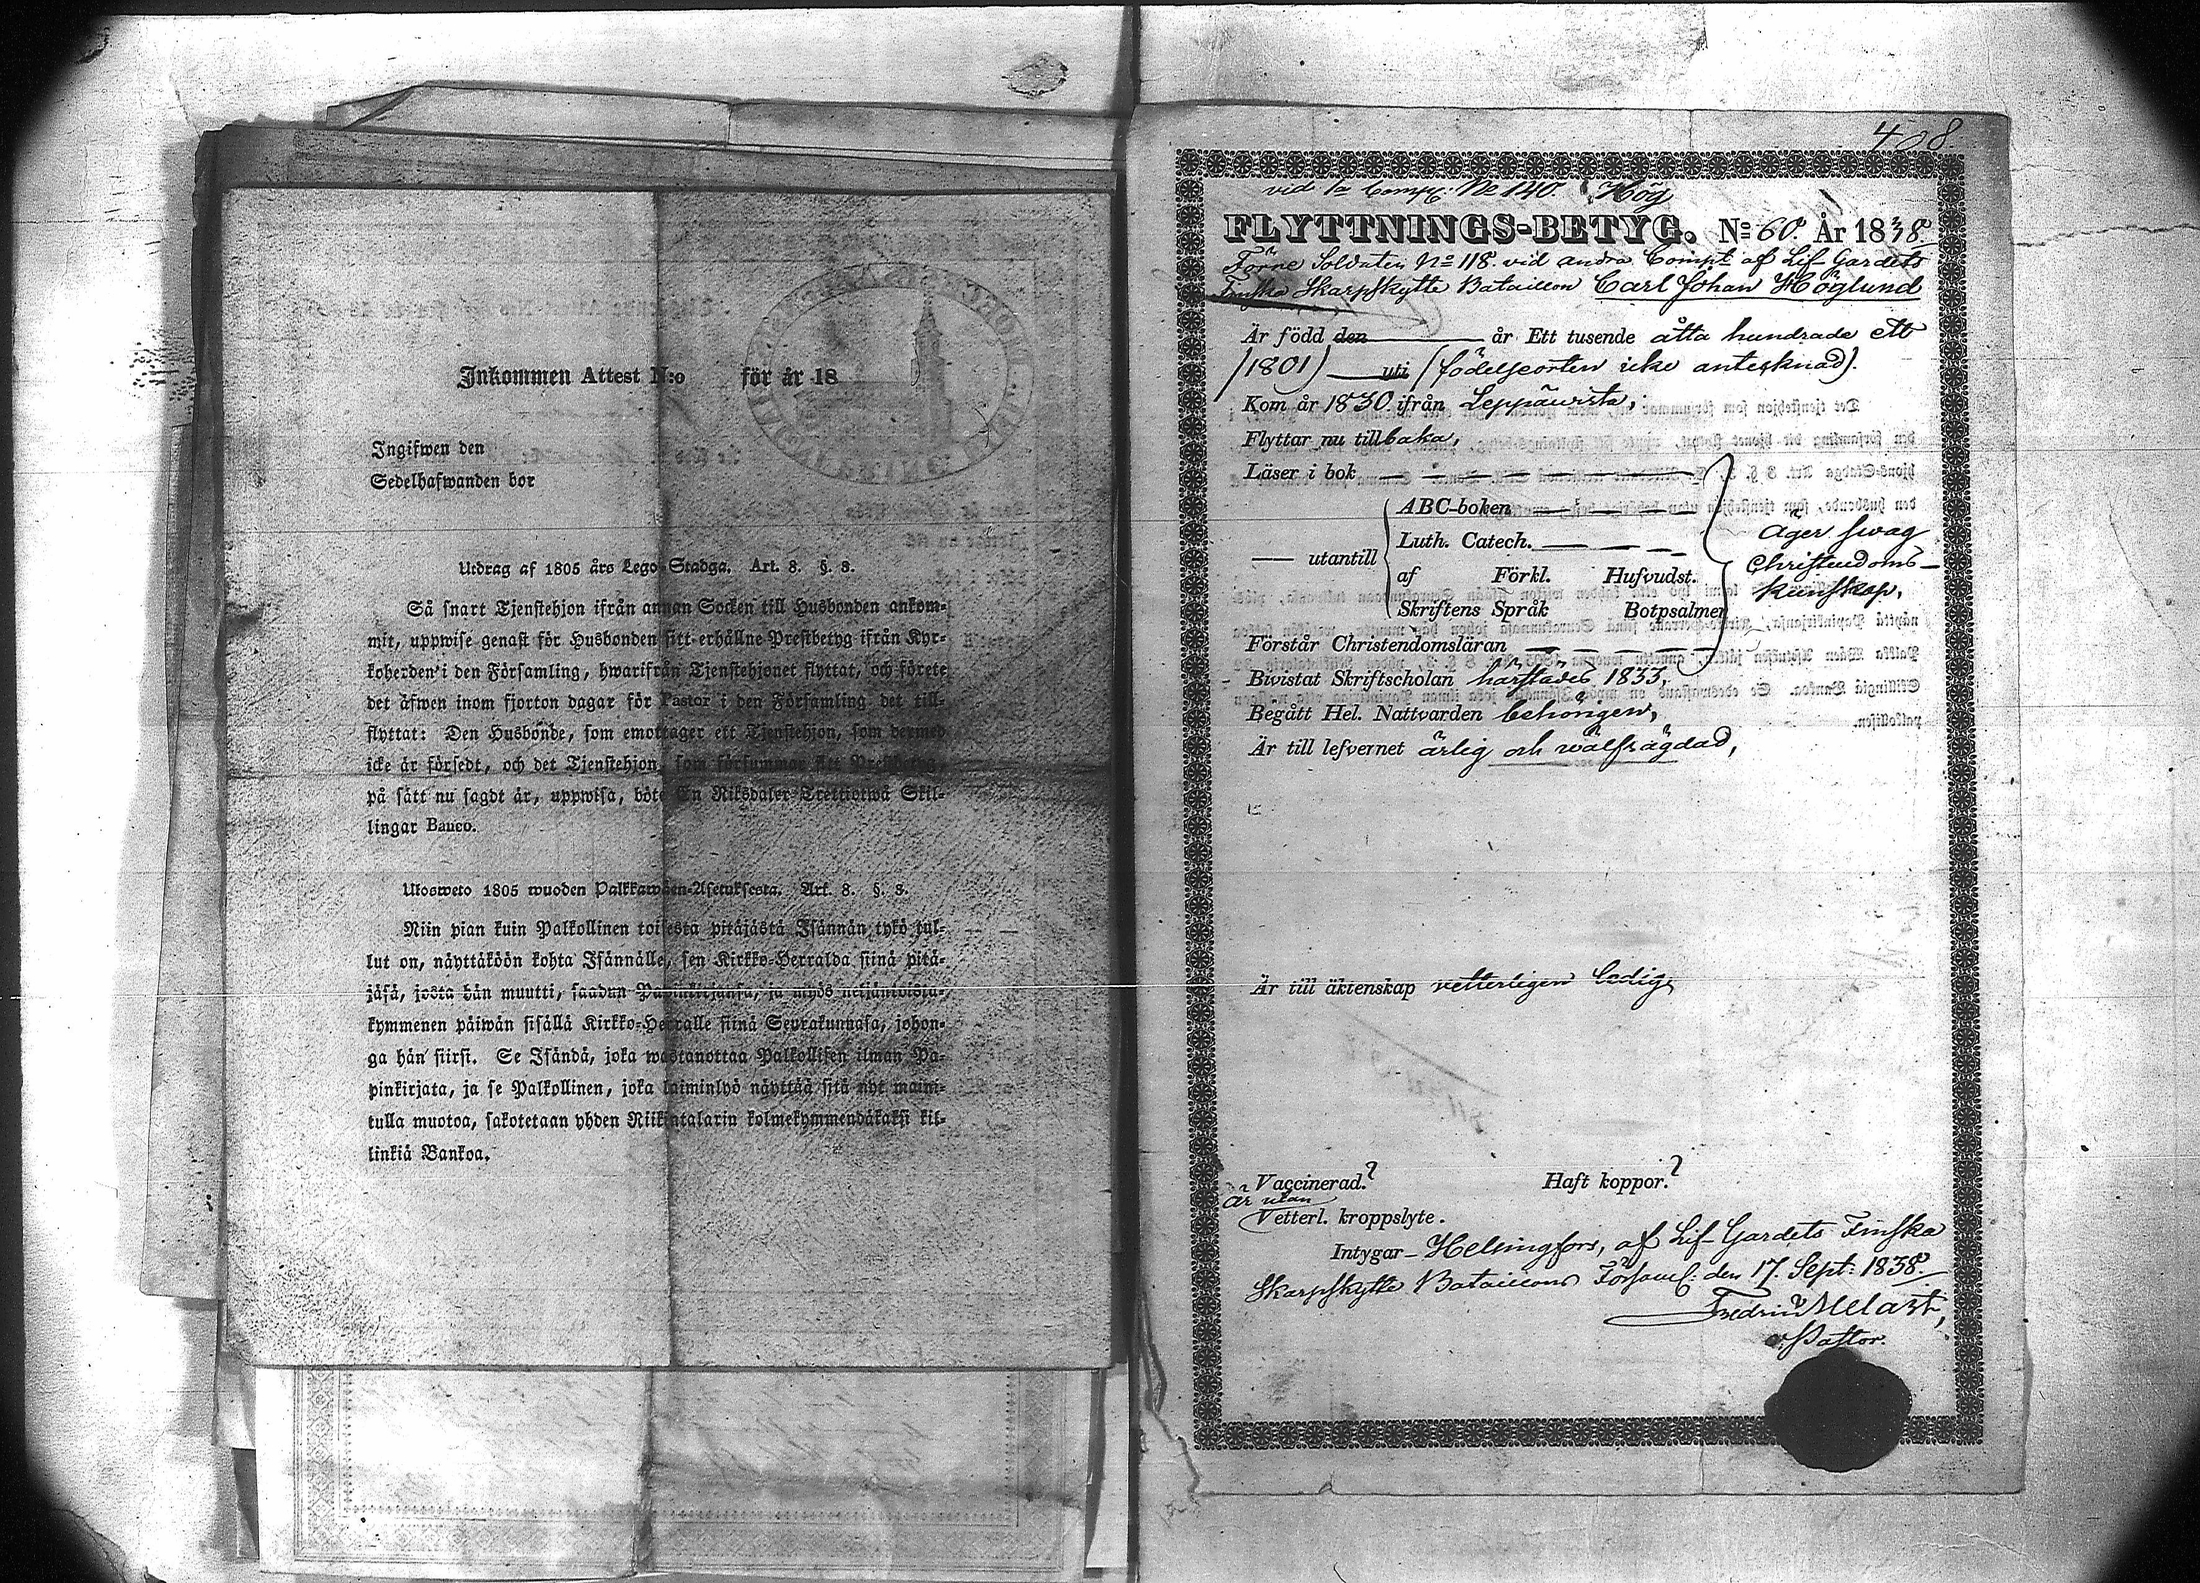 Inkommen Attest N:o för år 18
Ingifwen den
Sedelhafwanden bor
Utdrag af 1805 års Lego-Stadga. Art. 8. §. 3.
Så snart Tjenstehjon ifrån annan Socken till Husbonden ankom-
mit, uppwise genast för Husbonden sitt erhållne Prestbetyg ifrån Kyr-
koherden i den Församling, hwarifrån Tjenstehjonet flyttat, och förete
det äfwen inom fjorton dagar för Pastor i den Församling det till-
flyttat: Den Husbonde, som emottager ett Tjenstehjon, som dermed
icke är försedt, och det Tjenstehjon, som försummar sitt Prestbetyg,
på sätt nu sagdt är, uppwisa, böte En Riksdaler Trettiotwå Skil-
lingar Banco.
Ulosweto 1805 wuoden Palkkawäen-Asetuksesta. Art. 8. §. 3.
Niin pian kuin Palkollinen toisesta pitäjästä Isännän tykö tul-
lut on, näyttäköön kohta Isännälle, sen Kirkko-Herralda siinä pitä-
jäsä, josta hän muutti, saadun Papinkirjansa, ja myös neljäntoista-
kymmenen päiwän sisällä Kirkko-Herralle siinä Seurakunnasa, johon-
ga hän siirsi. Se Isändä, joka wastanottaa Palkollisen ilman Pa-
pinkirjata, ja se Palkollinen, joka laiminlyö näyttää sitä nyt maini-
tulla muotoa, sakotetaan yhden Riikintalarin kolmekymmendäkaksi kil-
linkiä Bankoa.
408.
vid 1a Comp. No 140. Hög
FLYTTNINGS-BETYG. No 60. År 1838
Förne Soldaten No 118. vid andra Compt af Lif-Gardets
Finska Skarpskytte Bataillon Carl Johan Höglund
Är född den år Ett tusende åtta hundrade ett
/1801/ uti (födelseorten icke antecknad).
Kom år 1830 ifrån Leppävirta;
Flyttar nu tillbaka,
Läser i bok
ABC-boken
Luth. Catech.
— utantill
af Förkl. Hufvudst.
Skriftens Språk Botpsalmer
Äger swag
Christendoms-
kunskap,
Förstår Christendomsläran
Bivistat Skriftscholan härstädes 1833,
Begått Hel. Nattvarden behörigen,
Är till lefvernet ärlig och wälfrägdad,
Är till äktenskap vetterligen ledig,
Vaccinerad? Haft koppor.?
Är utan
Vetterl. kroppslyte.
Intygar – Helsingfors, af Lif-Gardets Finska
Skarpskytte Bataillons Församl: den 17. Sept: 1838.
Fredric Melart,
v. Pastor.